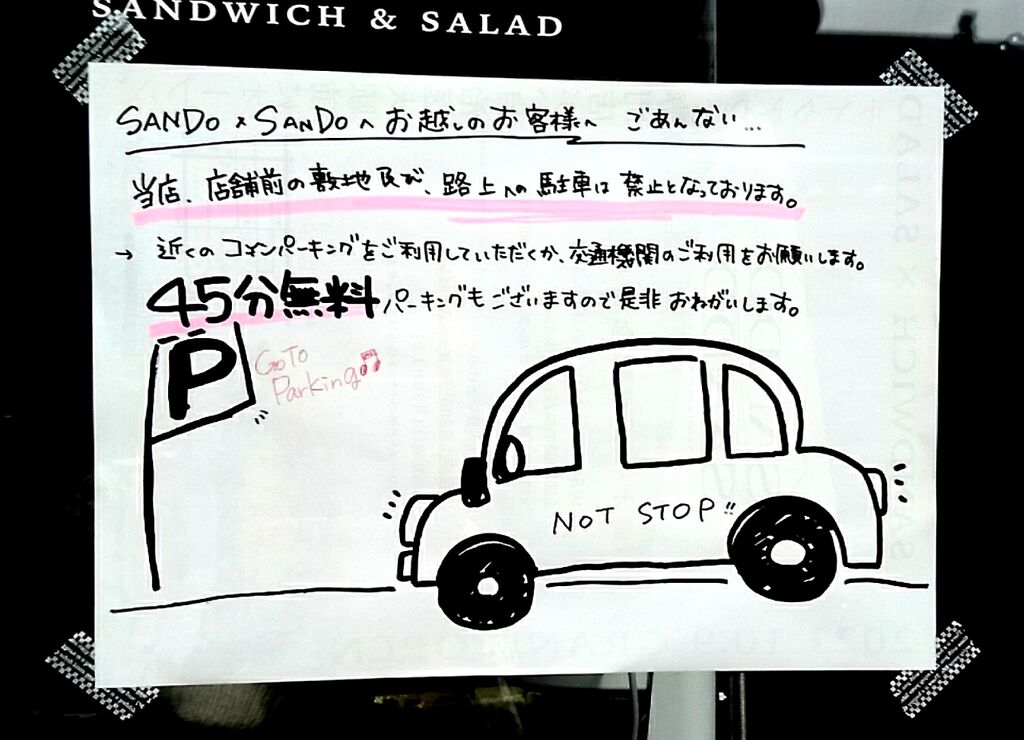 SANDWICH & SALAD
SANDO x SANDOへお越しのお客様へ ごあんない...
当店、店舗前の敷地及び、路上への駐車は禁止となっております。
→ 近くのコインパーキングをご利用していただくか、交通機関のご利用をお願いします。
45分無料パーキングもございますので是非おねがいします。
P
GoTo
Parking♫
NOT STOP!!